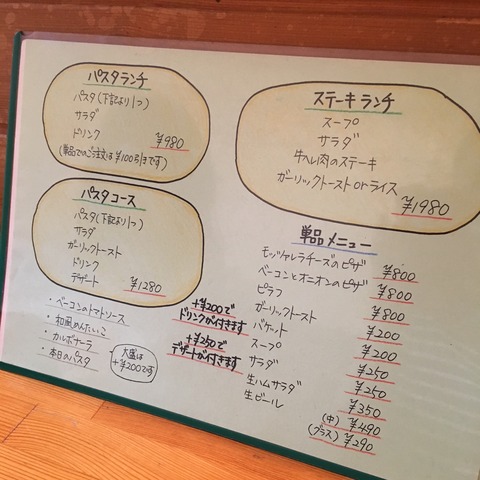 パスタランチ
パスタ(下記より1つ)
サラダ
ドリンク
¥980
(単品でのご注文は¥100引きです)
パスタコース
パスタ(下記より1つ)
サラダ
ガーリックトースト
ドリンク
デザート
¥1280
・ベーコンのトマトソース
・和風めんたいこ
・カルボナーラ
・本日のパスタ
大盛は
+¥200です
+¥200で
ドリンクが付きます
+¥250で
デザートが付きます
ステーキランチ
スープ
サラダ
牛ヘレ肉のステーキ
ガーリックトーストorライス
¥1980
単品メニュー
モッツァレラチーズのピザ ¥800
ベーコンとオニオンのピザ ¥800
ピラフ ¥800
ガーリックトースト ¥200
バケット ¥200
スープ ¥250
サラダ ¥250
生ハムサラダ ¥350
生ビール (中) ¥490
(グラス) ¥290